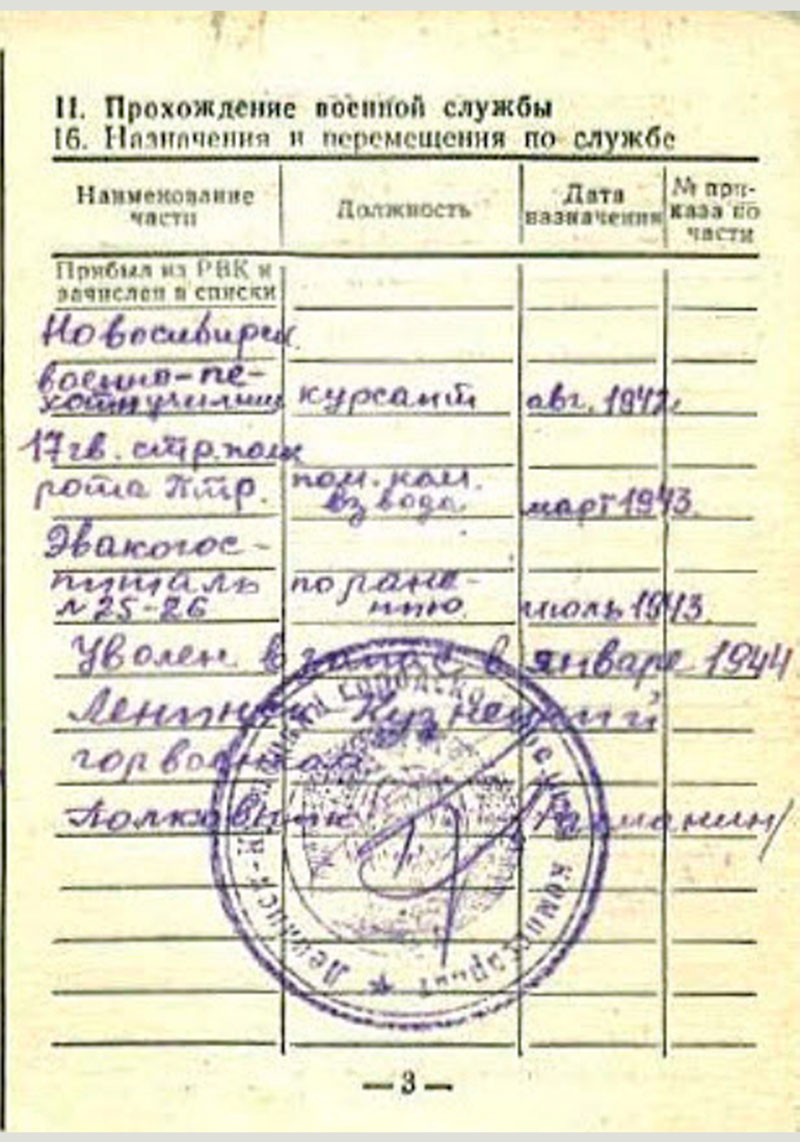 II. Прохождение военной службы
16. Назначения и перемещения по службе
Наименование части Должность Дата назначения № при-каза по части
Прибыл из РВК и
зачислен в списки
Новосибирск.
военно-пе-
хотн училище курсант авг. 1942г
17 гв. стр. полк
рота ПТР. пом. ком.
взвода март 1943.
Эвакогос-
питаль по ране-
№ 25-26 нию. июль 1943.
Уволен в запас в январе 1944
Ленинск Кузнецкий
горвоенком
Полковник
комиссариат
— 3 —